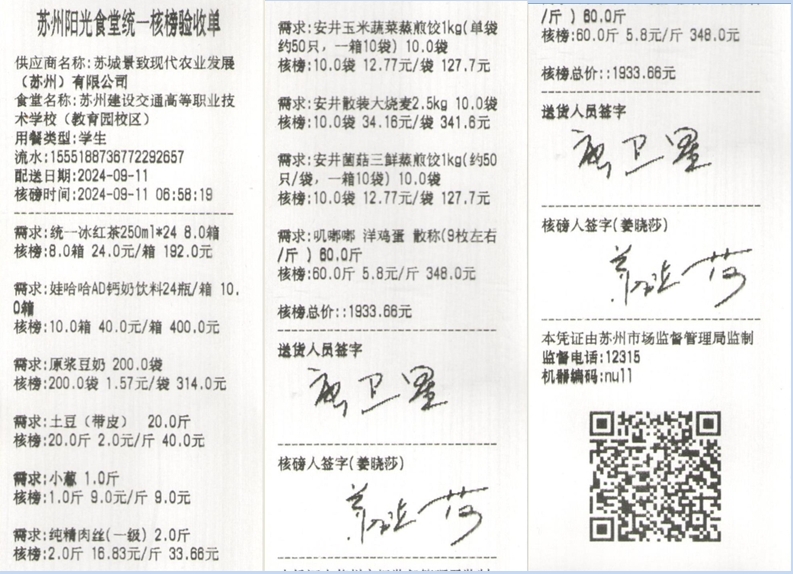 苏州阳光食堂统一核榜验收单
供应商名称:苏城景致现代农业发展
（苏州）有限公司
食堂名称:苏州建设交通高等职业技
术学校（教育园校区）
用餐类型:学生
流水:1555188738772292657
配送日期:2024-09-11
核磅时间:2024-09-11 06:58:19
需求:统一冰红茶250ml*24 8.0箱
核榜:8.0箱 24.0元/箱 192.0元
需求:娃哈哈AD钙奶饮料24瓶/箱 10.
0箱
核榜:10.0箱 40.0元/箱 400.0元
需求:原浆豆奶 200.0袋
核榜:200.0袋 1.57元/袋 314.0元
需求:土豆（带皮） 20.0斤
核榜:20.0斤 2.0元/斤 40.0元
需求:小葱 1.0斤
核榜:1.0斤 9.0元/斤 9.0元
需求:纯精肉丝(一级) 2.0斤
核榜:2.0斤 16.83元/斤 33.66元
需求:安井玉米蔬菜蒸煎饺1kg(单袋
约50只，一箱10袋) 10.0袋
核榜:10.0袋 12.77元/袋 127.7元
需求:安井散装大烧麦2.5kg 10.0袋
核榜:10.0袋 34.16元/袋 341.6元
需求:安井菌菇三鲜蒸煎饺1kg(约50
只/袋，一箱10袋) 10.0袋
核榜:10.0袋 12.77元/袋 127.7元
需求:叽嘟嘟 洋鸡蛋 散称(9枚左右
/斤 ) 60.0斤
核榜:60.0斤 5.8元/斤 348.0元
核榜总价::1933.66元
送货人员签字
核磅人签字(姜晓莎)
/斤 ) 60.0斤
核榜:60.0斤 5.8元/斤 348.0元
核榜总价::1933.66元
送货人员签字
核磅人签字(姜晓莎)
本凭证由苏州市场监督管理局监制
监督电话:12315
机器编码:null